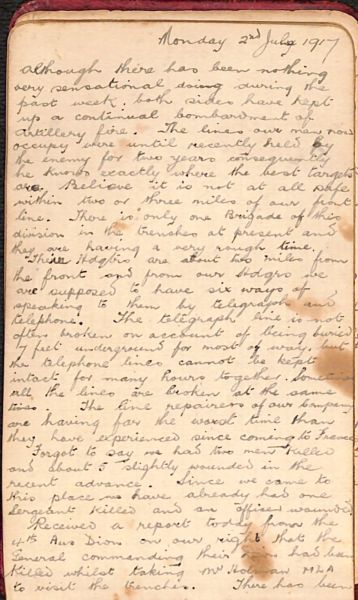 Monday 2nd July 1917
Although there has been nothing
very sensational doing during the
past week, both sides have kept
up a continual bombardment of
Artillery fire. The lines our men now
occupy were until recently held by
the enemy for two years consequently
he knows exactly where the best targets
are. Believe it is not at all safe
within two or three miles of our front
line. There is only one Brigade of this
division in the trenches at present and
they are having a very rough time.
Their Hdqtrs are about two miles from
the front and from our Hdqrs we
are supposed to have six ways of
speaking to them by telegraph and
telephone. The telegraph line is not
often broken on account of being buried
7 feet underground for most of way, but
the telephone lines cannot be kept
intact for many hours together. Sometimes
all the lines are broken at the same
time. The line repairers of our Company
are having far the worst time than
they have experienced since coming to France
Forgot to say we had two men killed
and about 5 slightly wounded in the
recent advance. Since we came to
this place we have already had one
Sergeant killed and an officer wounded.
Received a report today from the
4th Aus Divn on our right that the
General commanding their had been
killed whilst taking Mr Holman MLA
to visit the trenches. There has been